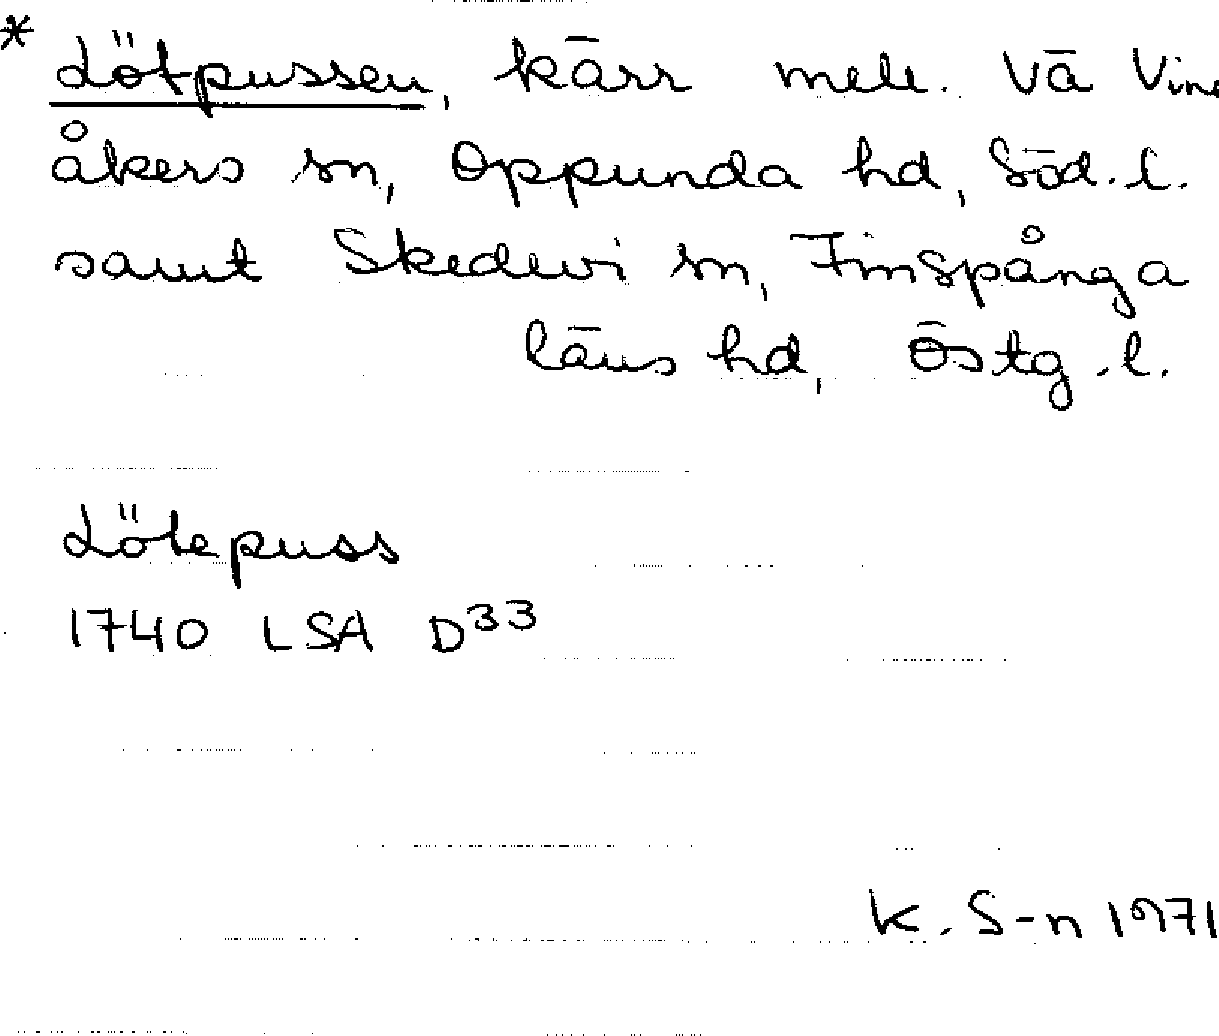 * Lötpussen, kärr mell. Vä Ving
åkers sn, Oppunda hd, Söd. l.
samt Skedevi sn, Finspånga
läns hd, Östg. l.
Lötepuss
1740 LSA D33
K. S-n 1971